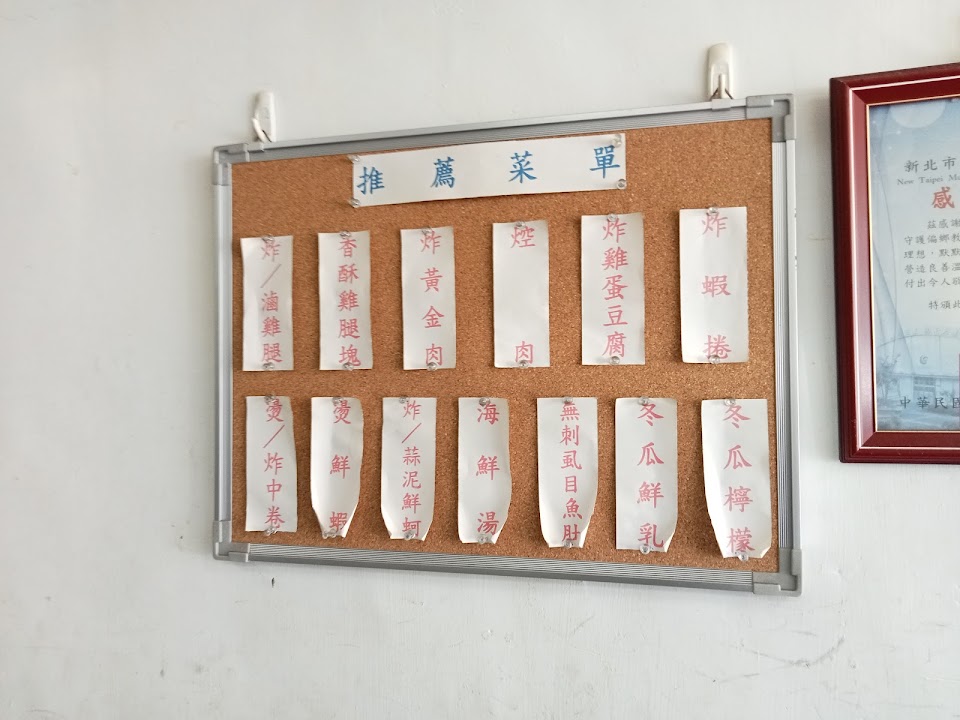 推薦菜單
炸/滷雞腿
香酥雞腿塊
炸黃金肉
焢肉
炸雞蛋豆腐
炸蝦捲
燙/炸中卷
燙鮮蝦
炸/蒜泥鮮蚵
海鮮湯
無刺虱目魚肚
冬瓜鮮乳
冬瓜檸檬
新北市
New Taipei
感
茲感謝
守護偏鄉教
理想,默默
營造良善溫
付出令人敬
特頒此
中華民國